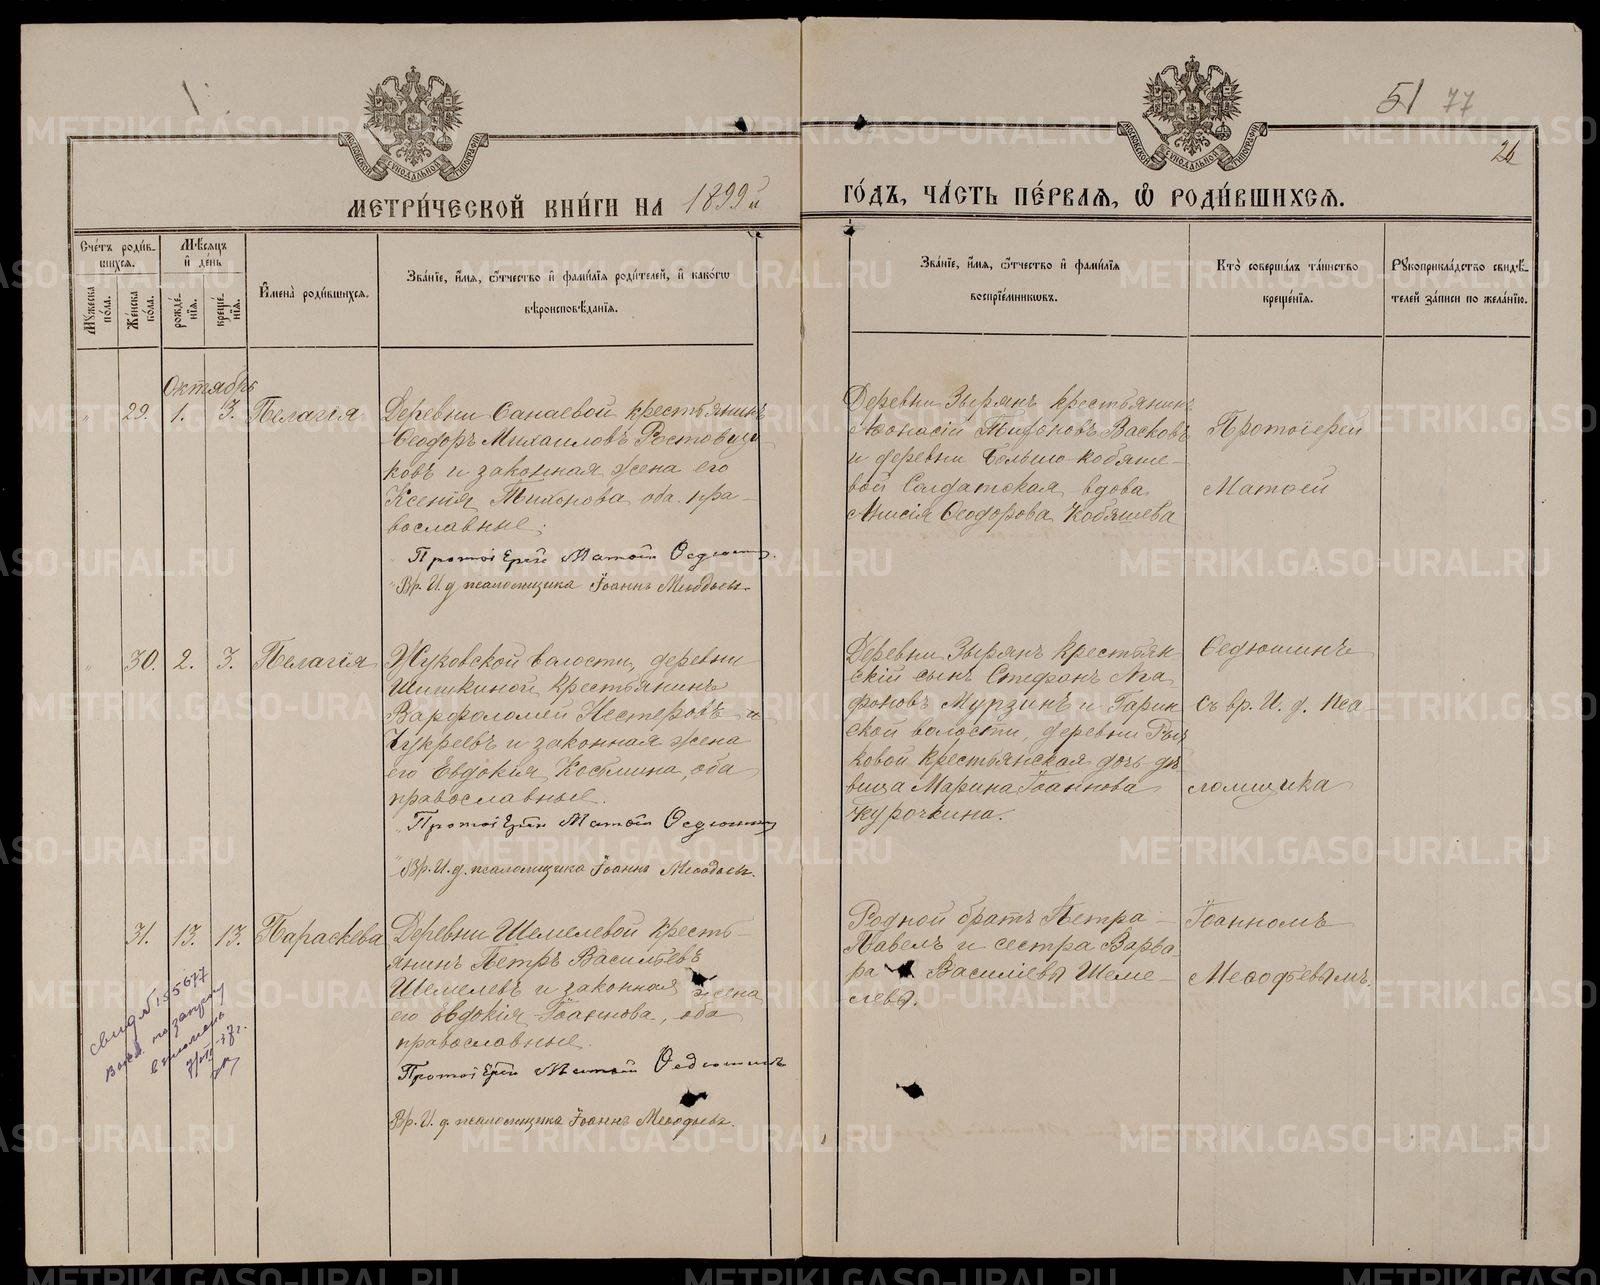 51 77
26
МОСКОВСКОЙ СѴНОДАЛЬНОЙ ТИПОГРАФІИ
МОСКОВСКОЙ СѴНОДАЛЬНОЙ ТИПОГРАФІИ
МЕТРИ́ЧЕСКОЙ КНИ́ГИ НА 1899й
ГО́ДЪ, ЧА́СТЬ ПЕ́РВАѦ, Ѡ҆ РОДИ́ВШИХСѦ.
Сче́тъ роди́в-
шихсѧ.
Мѣ́сѧцъ
и҆ де́нь
Мꙋ́жеска
по́ла.
Же́нска
по́ла.
рожде́-
нїѧ.
креще́-
нїѧ.
И҆мена̀ роди́вшихсѧ.
Зва́нїе, и҆́мѧ, ѻ҆́тчество и҆ фами́лїѧ роди́телей, и҆ како́гѡ
вѣроисповѣ́данїѧ.
Зва́нїе, и҆́мѧ, ѻ҆́тчество и҆ фами́лїѧ
воспрїе́мникѡвъ.
Кто̀ соверша́лъ та́инство
креще́нїѧ.
Рꙋкоприкла́дство свидѣ́-
телей за́писи по жела́нїю.
Октябрь
29. 1. 3. Пелагія
Деревни Санаевой крестьянинъ
Ѳеодоръ Михаиловъ Ростовщи
ковъ и законная жена его
Ксенія Тихонова, оба пра-
вославные.
Протоіерей Матѳій Ѳедюшинъ
Вр. И. д. псаломщика Іоаннъ Меѳодьевъ.
Деревни Зырянъ крестьянинъ
Аѳонасій Тихоновъ Васковъ
и деревни Больше-кобяше-
вой Солдатская вдова
Анисія Ѳеодорова Кобяшева
Протоіерей
Матѳей
30. 2. 3. Пелагія
Жуковской волости, деревни
Шишкиной крестьянинъ
Варфоломей Нестеровъ
Чукреевъ и законная жена
его Евдокия Космина, оба
православные.
Протоіерей Матѳій Ѳедюшинъ
Вр. И. д. псаломщика Іоаннъ Меѳодьевъ.
Деревни Зырянъ крестьян
скій сынъ Стефанъ Ага
фоновъ Мурзинъ и Гарин
ской волости, деревни
ковой крестьянская дочь дѣ
вица Марина Іоаннова
Журочкина.
Ѳедюшинъ
съ вр. И. д. пса-
ломщика
31. 13. 13. Параскева
Деревни Шемелевой кресть-
янинъ Петръ Васильевъ
Шемелевъ и законная жена
его Евдокія Іоаннова, оба
православные.
Протоіерей Матѳій Ѳедюшинъ
Вр. И. д. псаломщика Іоаннъ Меѳодьевъ.
Родной братъ Петра
Павелъ и сестра Варва
ра Василіевы Шеме-
левы.
Іоанномъ
Меѳодьевымъ.
свид № 155677